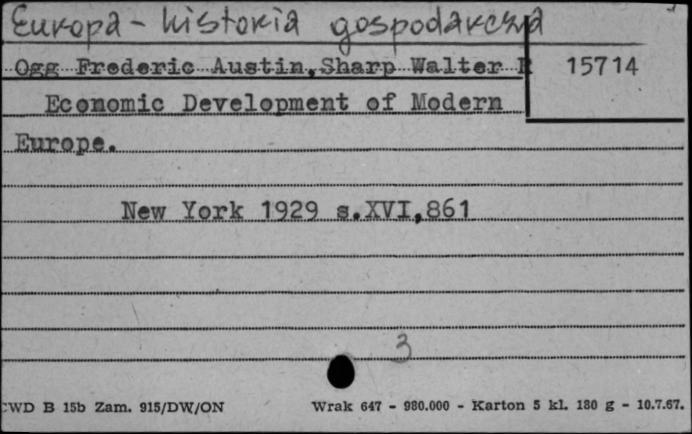 Europa - historia gospodarcza
Ogg Frederic Austin,Sharp Walter R
15714
Economic Development of Modern
Europe.
New York 1929 s.XVI,861
3
WD B 15b Zam. 915/DW/ON
Wrak 647 - 980.000 - Karton 5 kl. 180 g - 10.7.67.